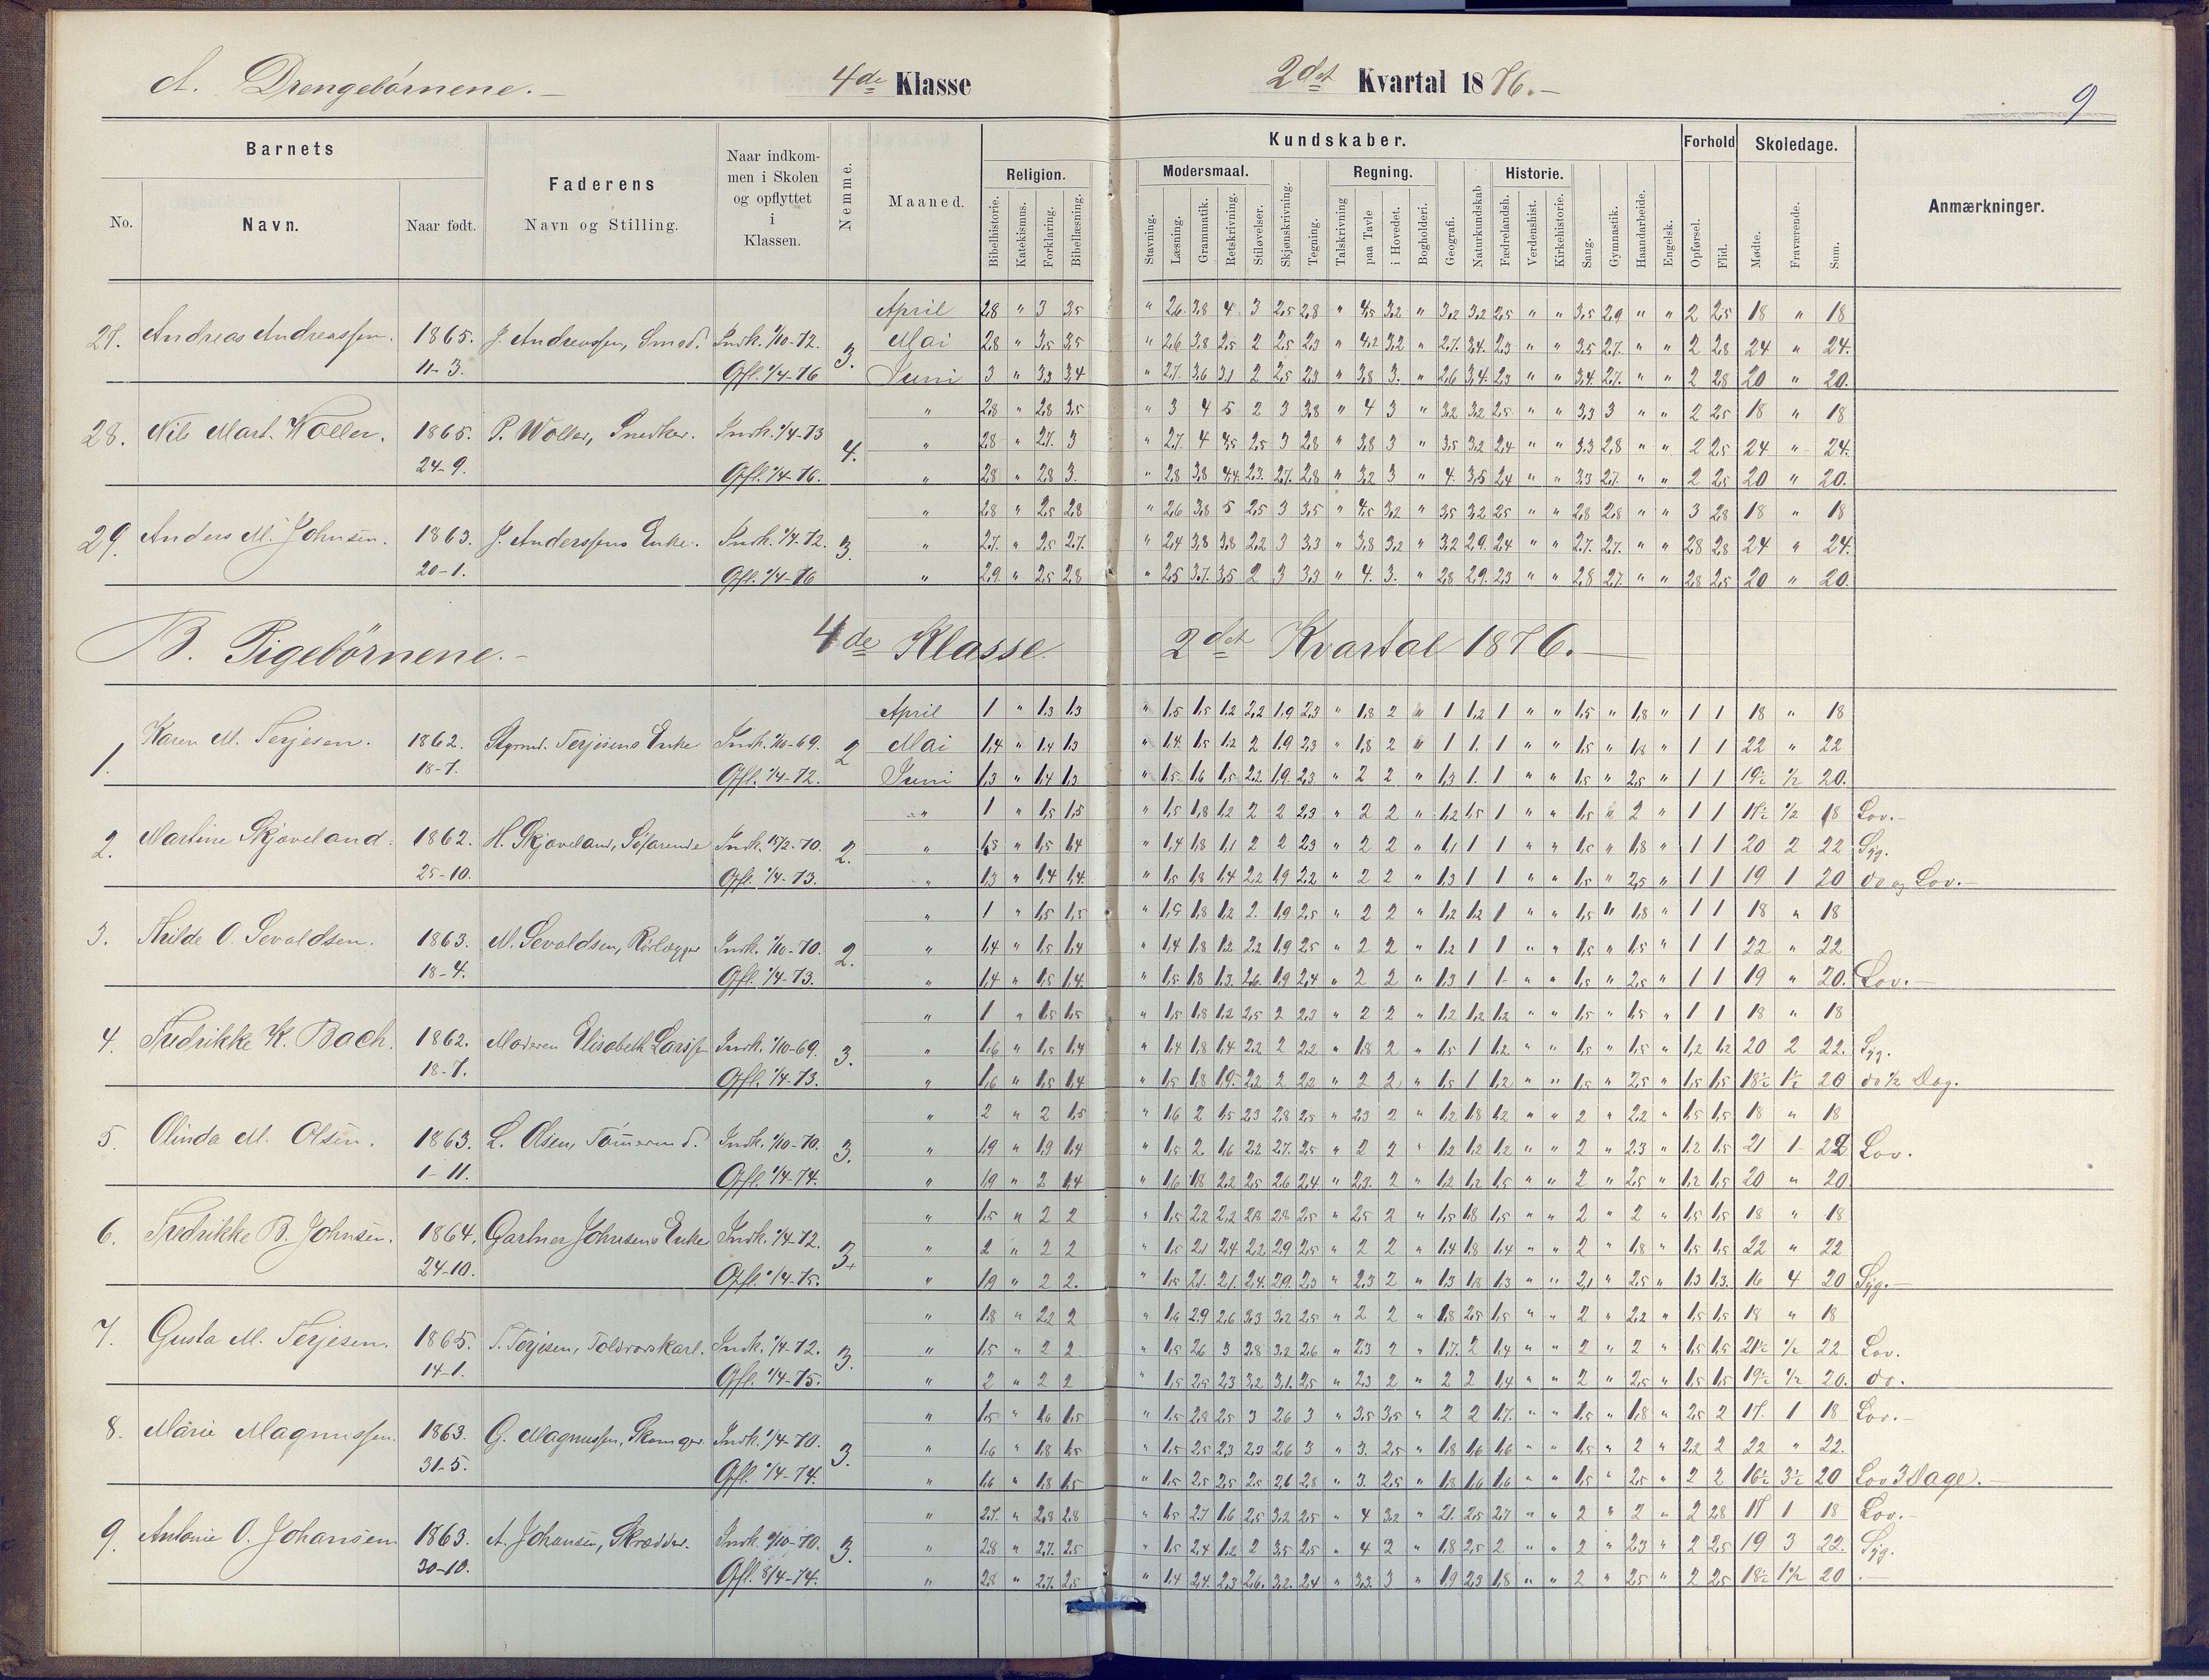 A. Drengebørnene.- 4de Klasse 2det Kvartal 1876.- 9
Barnets Faderens Naar indkommen i Skolen og opflyttet i Klassen. Nemme. Maaned. Kundskaber. Forhold Skoledage. Anmærkninger.
No. Navn. Naar født. Navn og Stilling. Religion. Modersmaal. Regning. Historie.
Bibelhistorie. Katekismus. Forklaring. Bibellæsning. Stavning. Læsning. Grammatik. Retskrivning. Stiløvelser. Skjønskrivning. Tegning. Talskrivning paa Tavle i Hovedet. Bogholderi. Geografi. Naturkundskab Fædrelandsh. Verdenshist. Kirkehistorie. Sang. Gymnastik. Haandarbeide. Engelsk. Opførsel. Flid. Mødte. Fraværende. Sum.
April 2,8 " 3 3,5 " 2,6 3,8 4 3 2,5 2,8 " 4,5 3,2 " 3,2 3,2 2,5 " " 3,5 2,9 " " 2 2,5 18 " 18
27. Andreas Andreassen. 1865. J. Andreassen, Smed. Indk. 1/10-72. 3. Mai 2,8 " 3,5 3,5 " 2,6 3,8 2,5 2 2,5 2,3 " 4,2 3,2 " 2,7. 3,4. 2,3 " " 3,5 2,7. " " 2 2,8 24 " 24.
11-3. Opfl. 1/4-76 Juni 3 " 3,3 3,4 " 2,7. 3,6 3,1 2 2,5 2,3 " 3,8 3. " 2,6 3,4. 2,3 " " 3,4. 2,7. " " 2 2,8 20 " 20.
" 2,8 " 2,8 3,5 " 3 4 5 2 3 3,8 " 4 3 " 3,2 3,2 2,5 " " 3,3 3 " " 2 2,5 18 " 18
28. Nils Mart. Woller. 1865. P. Woller, Snedker. Indk. 1/4-73 4. " 2,8 " 2,7. 3 " 2,7. 4 4,5 2,5 3 2,8 " 3,8 3 " 3,5 3,2 2,4 " " 3,3 2,8 " " 2 2,5 24 " 24.
24-9. Opfl. 1/4-76. " 2,8 " 2,8 3. " 2,8 3,8 4,4. 2,3. 2,7. 2,8 " 3,2 3 " 4. 3,5 2,4 " " 3,3 2,7. " " 2 2,5 20 " 20.
" 2,8 " 2,5 2,8 " 2,6 3,8 5 2,5 3 3,5 " 4,5 3,2 " 3,5 3,2 2,5 " " 2,8 2,8 " " 3 2,8 18 " 18
29. Anders M. Johnsen. 1863. J. Anderssens Enke. Indk. 1/4-72. 3. " 2,7. " 2,5 2,7. " 2,4 3,8 3,8 2,2 3 3,3 " 3,8 3,2 " 3,2 2,9. 2,4 " " 2,7. 2,7. " " 2,8 2,8 24 " 24.
20-1. Opfl. 1/4-76 " 2,9. " 2,5 2,8 " 2,5 3,7. 3,5 2 3 3,3 " 4. 3. " 2,8 2,9. 2,3 " " 2,8 2,7. " " 2,8 2,5 20 " 20.
B. Pigebørnene.- 4de Klasse 2det Kvartal 1876.-
April 1 " 1,3 1,3 " 1,5 1,5 1,2 2,2 1,9 2,3 " 1,8 2 " 1 1,2 1 " " 1,5 " 1,8 " 1 1 18 " 18
1. Karen M. Terjesen. 1862. Sigmd. Terjesens Enke Indk. 1/10-69. 2 Mai 1,4 " 1,4 1,3 " 1,4. 1,5 1,2 2 1,9 2,3 " 1,8 2 " 1 1. 1 " " 1,5 " 1,8 " 1 1 22 " 22
18-7. Opfl. 1/4-72. Juni 1,3 " 1,4 1,3 " 1,5. 1,6 1,5 2,2 1,9. 2,3 " 2 2 " 1,3 1. 1 " " 1,5 " 2,5 " 1 1 19½ ½ 20.
" 1 " 1,5 1,5 " 1,5 1,8 1,2 2 2 2,3 " 2 2 " 1,2 1,5 1 " " 1,5 " 2 " 1 1 17½ ½ 18 Lov.-
2. Martine Skjøveland. 1862. H. Skjøveland, Søfarende Indk. 15/2-70. 2. " 1,3 " 1,5 1,4 " 1,4 1,8 1,1 2 2 2,3 " 2 2 " 1,1 1 1 " " 1,5 " 1,8 " 1 1 20 2 22 Syg.
25-10. Opfl. 1/4-73. " 1,3 " 1,4 1,4. " 1,5 1,8 1,4 2,2 1,9 2,2 " 2 2 " 1,3 1 1 " " 1,5 " 2,5 " 1 1 19 1 20 do og Lov.-
" 1 " 1,5 1,5 " 1,5 1,8 1,2 2. 1,9 2,5 " 2 2 " 1,2 1,2 1 " " 1,5 " 1,8 " 1 1 18 " 18
3. Hilde O. Sevaldsen. 1863. M. Sevaldsen, Rørlægger Indk. 1/10-70. 2. " 1,4 " 1,5 1,4 " 1,4 1,8 1,2 2,2 1,9 2,5 " 2 2 " 1,2 1 1 " " 1,5 " 1,5 " 1 1 22 " 22
18-4. Opfl. 1/4-73. " 1,4 " 1,5 1,4. " 1,5 1,8 1,3. 2,6. 1,9 2,4 " 2 2 " 1,3 1 1 " " 1,5 " 2,5 " 1 1 19 " 20. Lov.-
" 1 " 1,5 1,5 " 1,5 1,8 1,2 2,5 2 2,3 " 2 2 " 1,2 1,2 1,2 " " 1,5 " 1,5 " 1 1 18 " 18
4. Fredrikke K. Bach. 1862. Moderen Elisabeth Larssen Indk. 1/10-69. 3. " 1,6 " 1,5 1,4 " 1,4 1,8 1,4 2,2 2 2,2 " 1,8 2 " 1,5 1 1,2 " " 1,5 " 1,5 " 1,2 1,2 20 2 22. Syg.
18-7. Opfl. 1/4-73. " 1,6 " 1,5 1,4 " 1,5 1,8 1,9. 2,2 2 2,2 " 2 2 " 1,5 1 1,2 " " 1,5 " 2,5 " 1,5 1,5 18½ 1½ 20 do ½ Dag.
" 2 " 2 1,5 " 1,6 2 1,5 2,3 2,8 2,5 " 2,3 2 " 1,2 1,8 1,2 " " 2 " 2,2 " 1,5 1,5 18 " 18
5. Olinda M. Olsen. 1863. L. Olsen, Tømmermd. Indk. 1/10-70. 3. " 1,9 " 1,9 1,4 " 1,5 2 1,6 2,2 2,7. 2,5 " 2 2 " 1,2 1,2 1,2 " " 2 " 2,3 " 1,2 1,5 21 1 22 Lov.
1-11. Opfl. 1/4-74. " 1,9 " 2 1,4 " 1,6 1,8 2,2 2,5 2,6 2,4 " 2,3. 2 " 1,2 1,2 1,5 " " 2 " 2,5 " 1,2 1,5 20 " 20
" 1,5 " 2 2 " 1,5 2,2 2,2 2,8 2,8 2,5 " 2,5 2 " 1,5 1,8 1,5 " " 2 " 2 " 1,5 1,5 18 " 18
6. Fredrikke B. Johnsen. 1864. Gartner Johnsens Enke Indk. 1/4-72. 3+ " 2 " 2 2 " 1,5 2,1 2,4 2,2 2,9 2,5 " 2 2 " 1,4 1,8 1,4 " " 2 " 1,8 " 1,5 1,5 22 " 22
24-10. Opfl. 1/4-75. " 1,9 " 2 2. " 1,5 2,1. 2,1. 2,4. 2,9. 2,3 " 2,3 2 " 1,3 1,8 1,3 " " 2,1 " 2,5 " 1,3 1,3. 16 4 20 Syg.-
" 1,8 " 2,2 2 " 1,6 2,9 2,6 3,3 3,2 2,5 " 2 2 " 1,8 2,5 1,5 " " 2 " 2,2 " 1,5 1,5 18 " 18
7. Gusta M. Terjesen. 1865. T. Terjesen, Toldrorskarl. Indk. 1/4-72. 3. " 1,5 " 2 2 " 1,5 2,6 3 2,8 3,2 2,6 " 2,3 2 " 1,7. 2 1,4 " " 2 " 2 " 1,5 1,5 21½ ½ 22 Lov.
14-1. Opfl. 1/4-75. " 2 " 2 2 " 1,5 2,5 2,3 3,2 3,1. 2,5 " 2,3 2 " 2 2 1,4 " " 2 " 2,5 " 1,5 1,5 19½ ½ 20. do.
" 1,5 " 1,6 1,5 " 1,5 2,8 2,5 3 2,6 3 " 3,5 3,5 " 2 2 1,7. " " 1,5 " 1,8 " 2,5 2 17. 1 18 Lov.-
8. Marie Magnussen. 1863. G. Magnussen, Skomager Indk. 1/4-70. 3. " 1,6 " 1,8 1,5 " 1,5 2,5 2,3 2,3 2,6 3 " 3. 2,5 " 1,8 1,6 1,6 " " 1,5 " 2 " 2,2 2 22 " 22.
31-5. Opfl. 1/4-74. " 1,6 " 1,8 1,5 " 1,5 2,5 2,5 2,5 2,6 2,8 " 3. 2,5 " 1,8 1,6 1,6 " " 1,5 " 2,5 " 2 2 16½ 3½ 20 Lov 3 Dage.-
" 2,7. " 2,8 2,8 " 1,5 2,7 1,6 2,5 3,2 2,5 " 4 3,2 " 2,1. 2,5 2,7 " " 2 " 2 " 2 2,8 17 1 18 Lov.-
9. Antonie O. Johansen 1863. A. Johansen, Skrædder. Indk. 1/10-70. 3. " 2,8 " 2,7. 2,5 " 1,5 2,4 1,2 2 3,5 2,5 " 4 2 " 1,8 2,5 2 " " 2 " 2,3 " 2 2,5 19 3 22. Syg.
30-10. Opfl. 8/4-74. " 2,8 " 2,7. 2,5 " 1,4 2,4. 2,3 2,6. 3,2. 2,4 " 3,3. 3 " 1,9 2,3 1,8 " " 2 " 2,5 " 2 2,5 18½ 1½ 20 .-